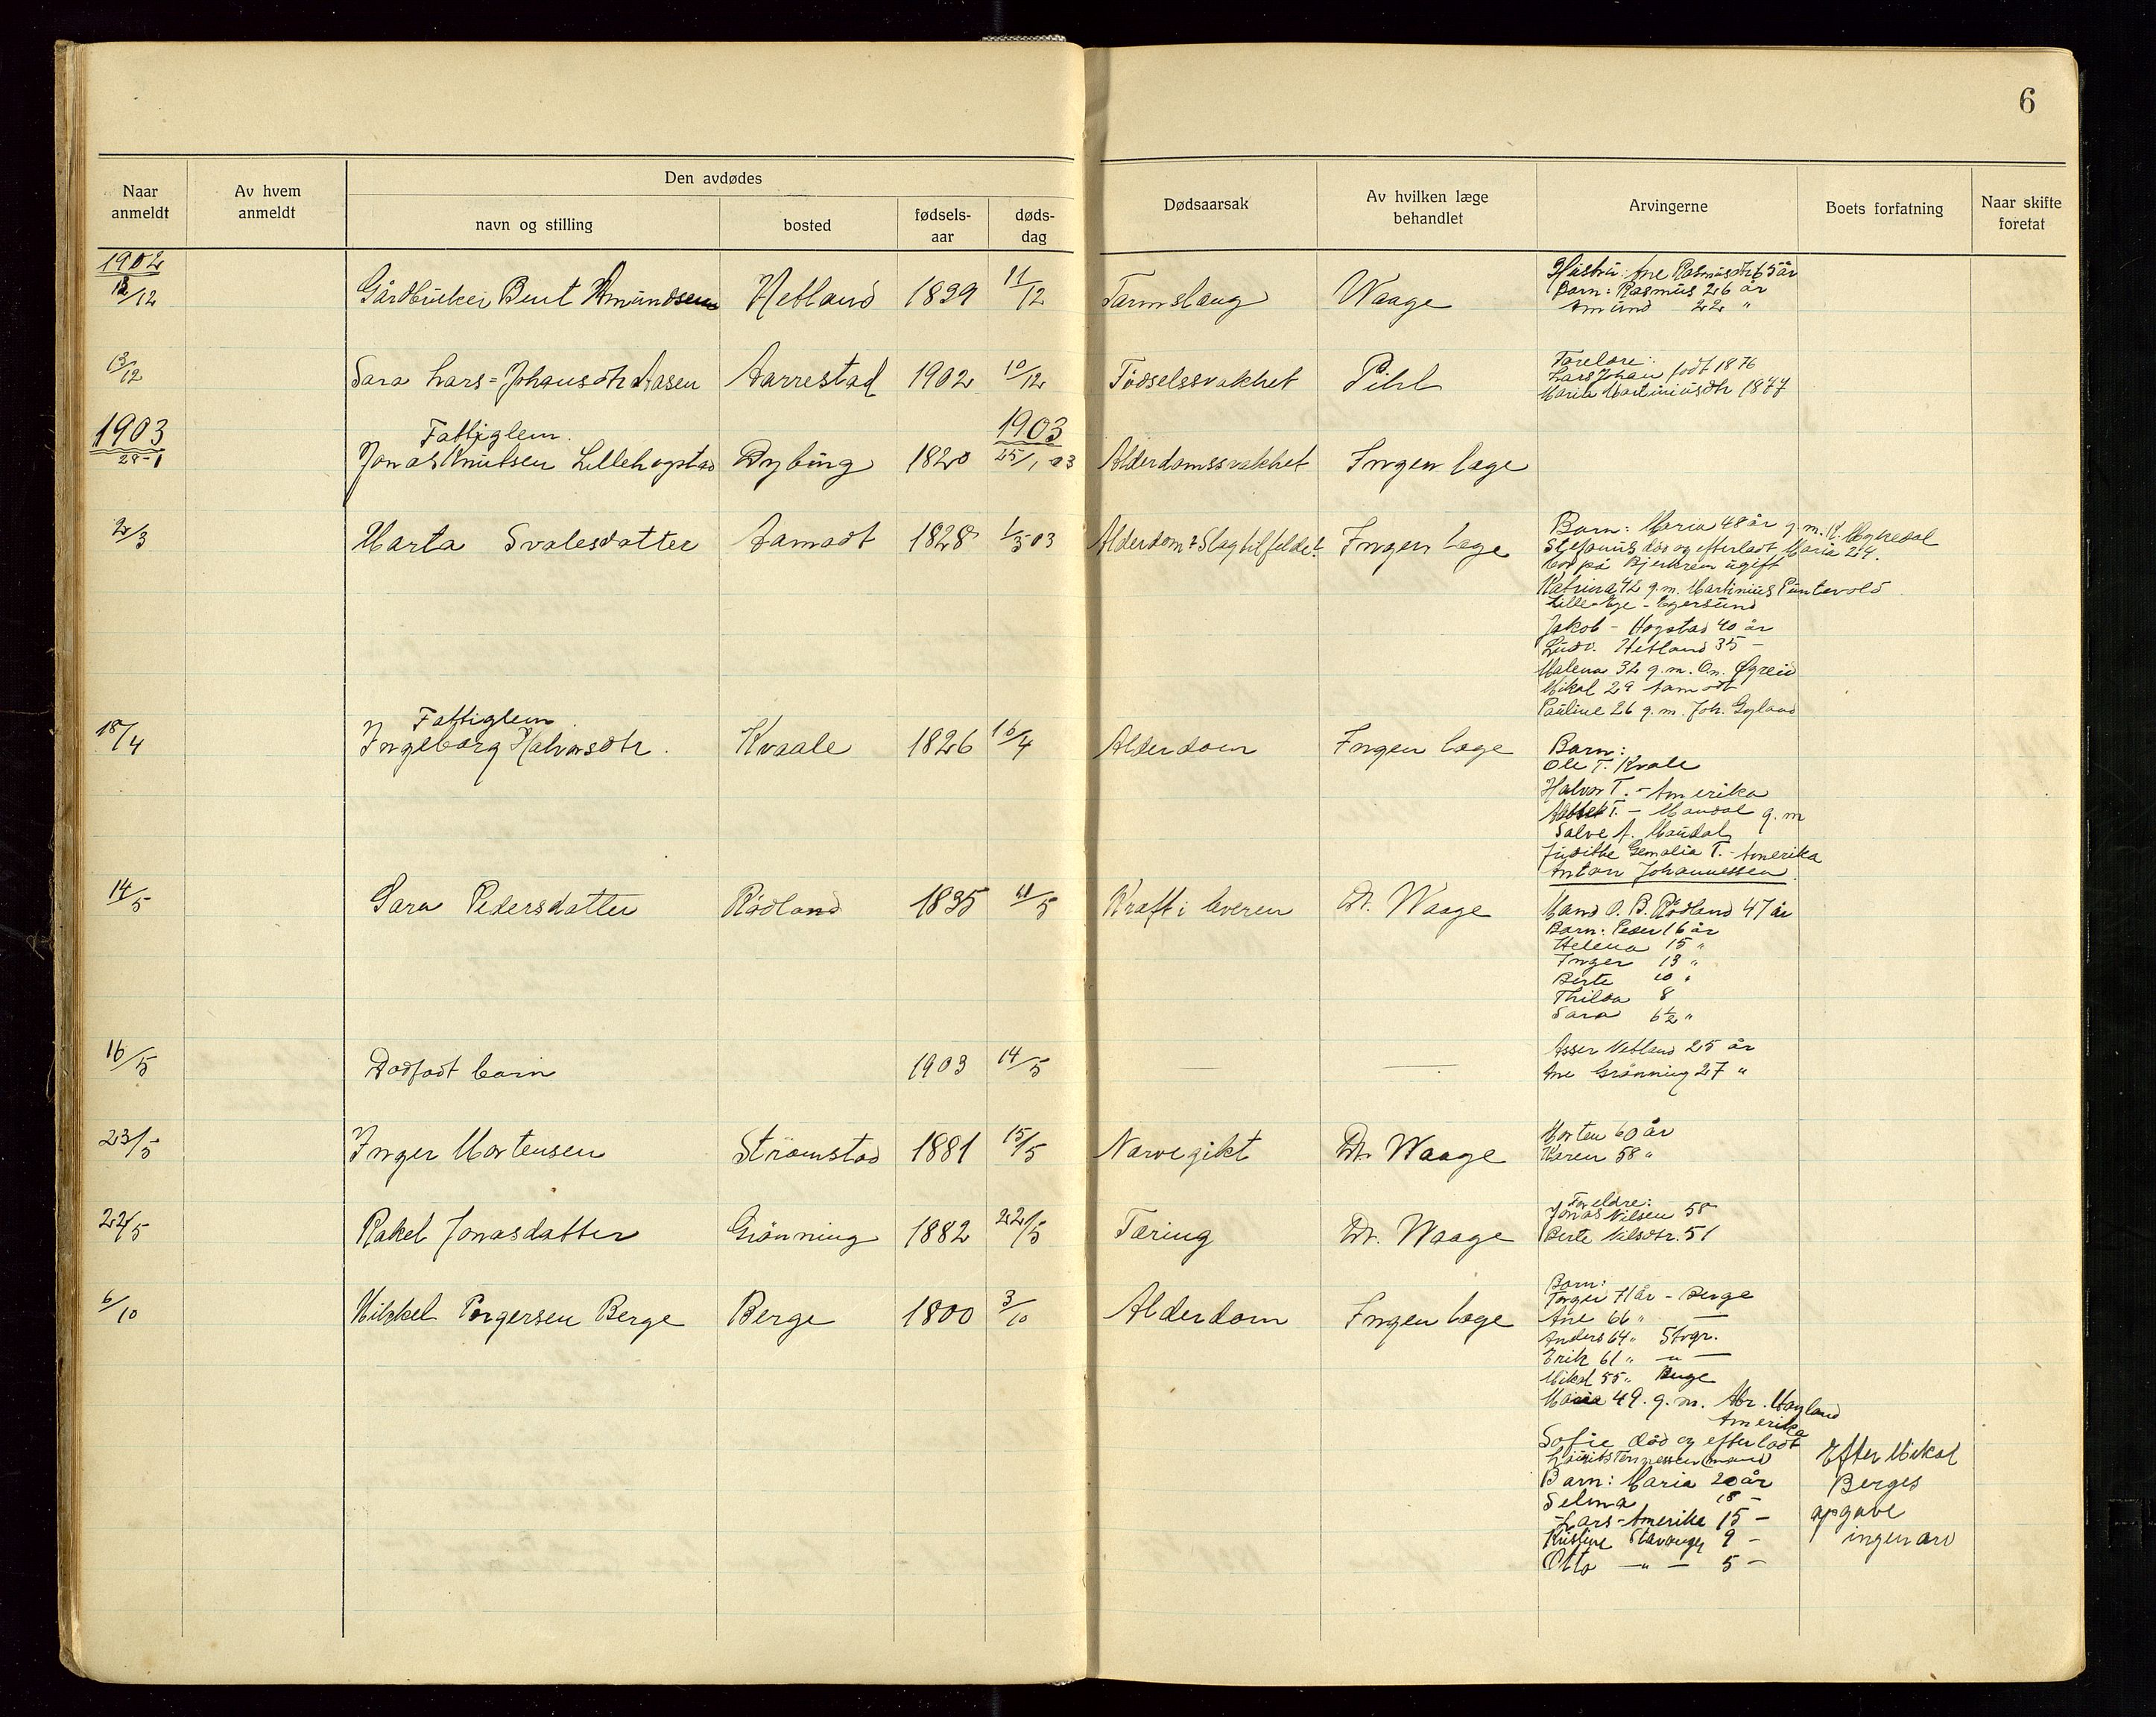 6
Naar anmeldt
Av hvem anmeldt
Den avdødes
navn og stilling
bosted
fødsels-aar
døds-dag
Dødsaarsak
Av hvilken læge behandlet
Arvingerne
Boets forfatning
Naar skifte foretat
1902
12/12 Gårdbruker Bent Amundsen Hetland 1839 11/12 Tarmslang Waage
Hustru: Ane Rasmusdtr 65 år
Barn: Rasmus 26 år
Amund 22 "
13/12 Sara Lars-Johansdtr Aasen Aarrestad 1902 10/12 Födselssvakhet Pihl
Foreldre:
Lars Johan födt 1876
Maria Martiniusdtr 1877
1903
1903
Fattiglem
29-1 Jonas Knutsen Lillehogstad Dybing 1820 25/1 03 Alderdomssvakhet Ingen læge
2/3 Marta Svalesdatter Aamodt 1828 1/3 03 Alderdom? Slagtilfelde? Ingen læge
Barn: Maria 48 år g.m. K. Mykedal
Stefanus död og efterladt Maria 24.
bor på Bjerkrem ugift
Katrina 42 g.m. Martinius Puntevold
Lille-Ege - Egersund
Jakob - Hogstad 40 år
Ludv. Hetland 35 -
Malena 32 g.m. Om. Øgreid
Mikal 29 Aamodt
Pauline 26 g.m. Joh. Gyland
Fattiglem
18/4 Ingeborg Halvorsdtr. Kvaale 1826 16/4 Alderdom Ingen læge
Barn:
Ole T. Kvale
Halvor T. - Amerika
T. - Maudal g.m
Salve A. Maudal
Judithe Gemalia T. - Amerika
Anton Johannessen
14/5 Sara Pedersdatter Rödland 1835 11/5 Kræft i leveren Dr. Waage
Mand O. B. Rödland 47 år
Barn: Peder 16 år
Helena 15 "
Inger 13 "
Berte 10 "
Thilda 8
Sara 6½ "
16/5 Dödfödt barn 1903 14/5 — —
Asser Netland 25 år
Ane Grönning 27 "
23/5 Inger Mortensen Strömstad 1881 15/5 Nervegikt Dr. Waage
Morten 60 år
Karen 58 "
22/5 Rakel Jonasdatter Grönning 1882 22/5 Tæring Dr. Waage
Foreldre:
Jonas Nilsen 58
Berte Nilsdtr. 51
6/10 Mikkel Torgersen Berge Berge 1800 3/10 Alderdom Ingen læge
Barn:
Torger 71 år - Berge
Ane 66 " —
Anders 64 " Stvgr.
Erik 61 " — " —
Mikal 55 " Berge
Maria 49. g.m. Abr. Hayland
Amerika
Sofie död og efterladt
Tønnessen (mand)
Barn: Maria 20 år
Selma 18 -
Lars - Amerika 15 -
Kristine Stavanger 9 -
Otto — " — 5 -
Efter Mikal
Berges
opgave
ingen arv